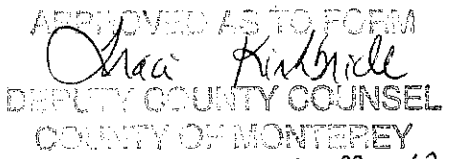 APPROVED AS TO FORM
Traci Kirkbride
DEPUTY COUNTY COUNSEL
COUNTY OF MONTEREY